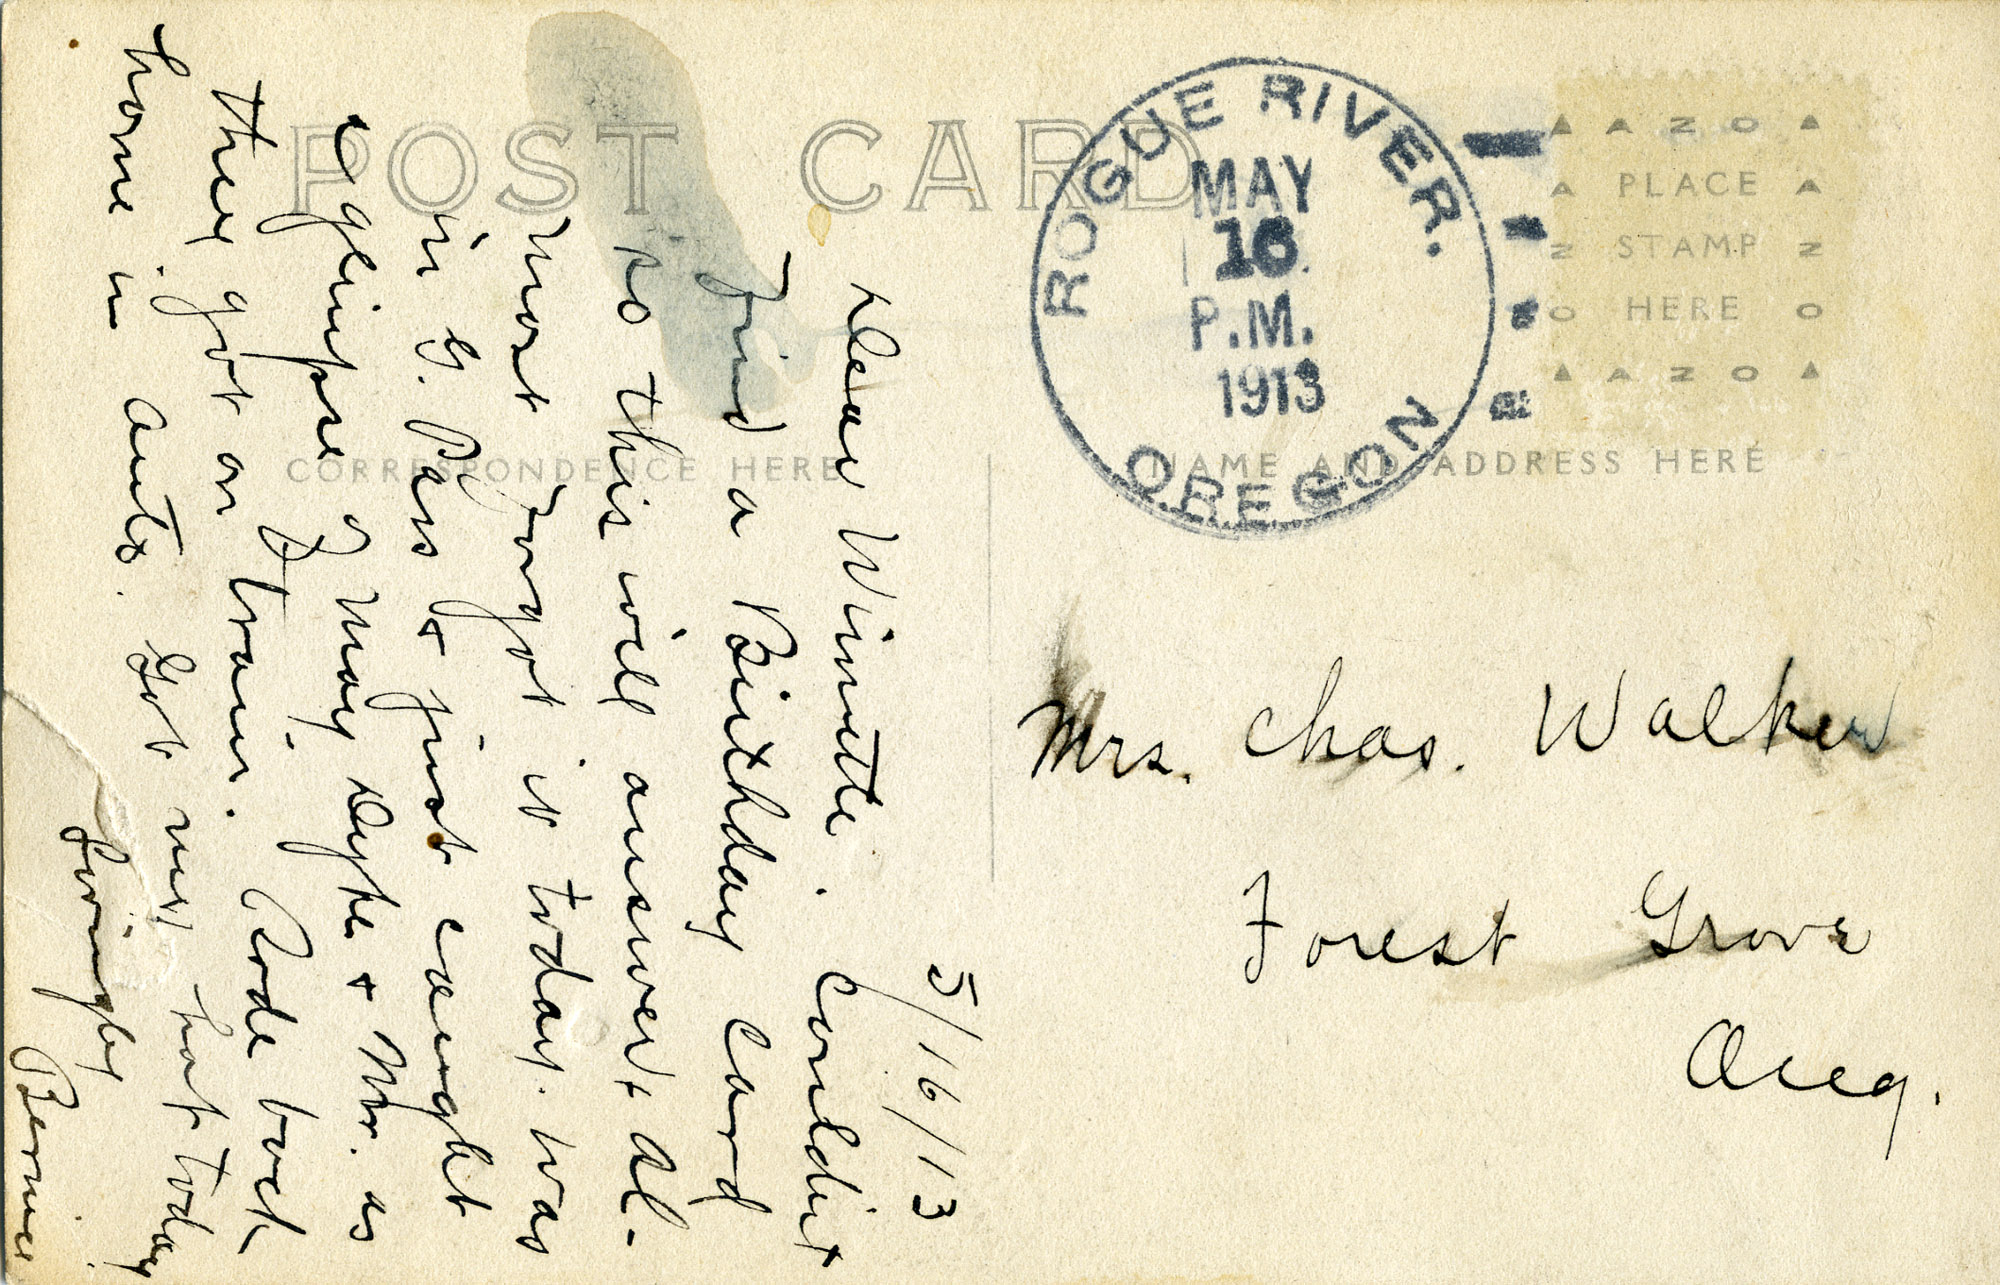 POST CARD
CORRESPONDENCE HERE
NAME AND ADDRESS HERE
AZO
PLACE
STAMP
HERE
AZO
ROGUE RIVER.
MAY
16
P.M.
1913
OREGON
5/16/13
Dear Winnette. Couldn't
find a Birthday Card
so this will answer. Al-
most forgot it today. Was
in G. Pass & just caught
a glimpse of May Dyke & Mr. as
they got on train. Rode back
home in auto. Got my hat today
Lovingly
Bernice
Mrs. Chas. Walker
Forest Grove
Oreg.